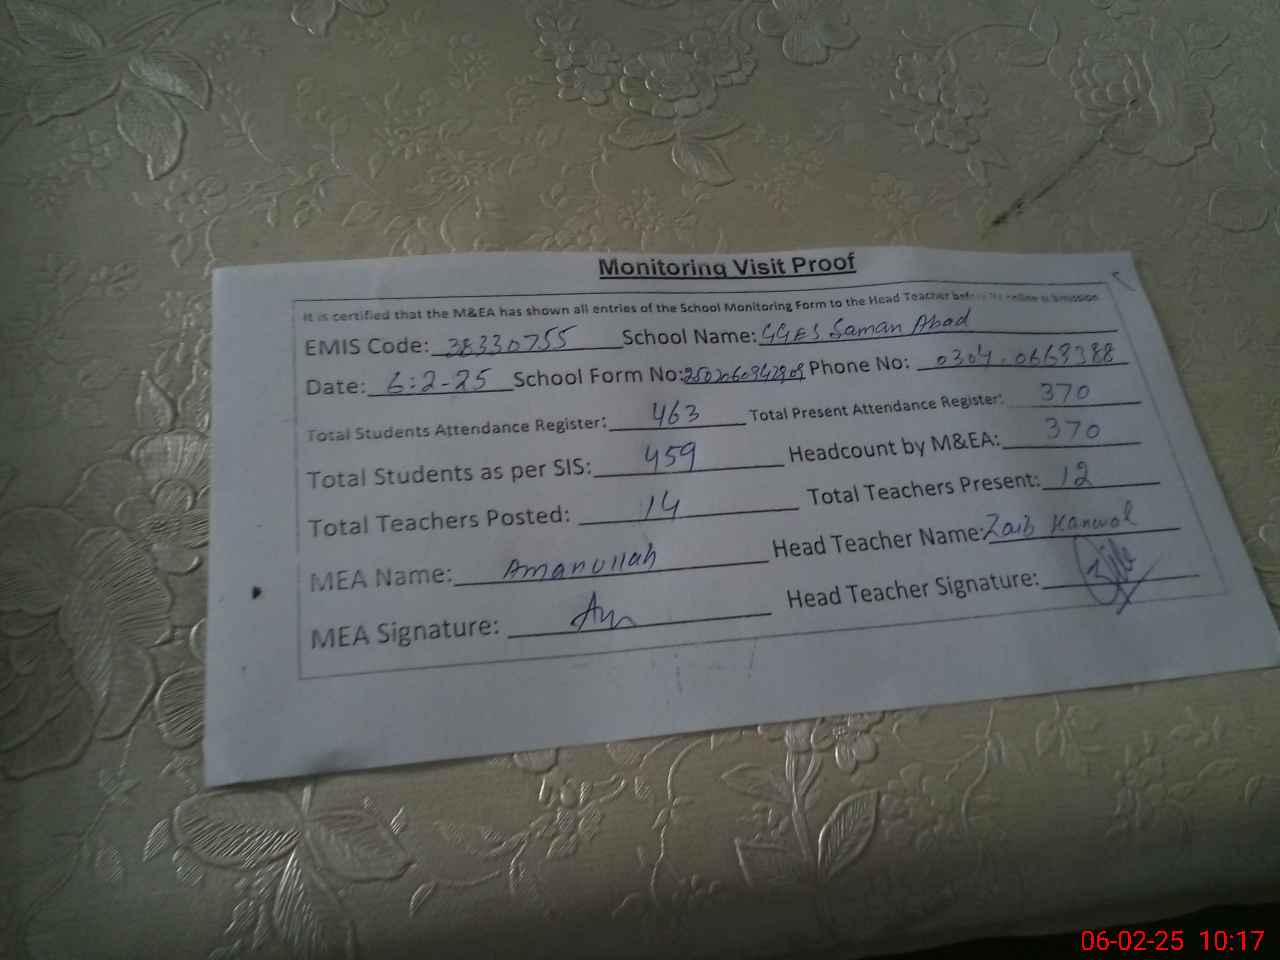 Monitoring Visit Proof
It is certified that the M&EA has shown all entries of the School Monitoring Form to the Head Teacher before its online submission
EMIS Code: 38330755 School Name: GGES Saman Abad
Date: 6:2-25 School Form No: Phone No: 0304.0668388
Total Students Attendance Register: 463 Total Present Attendance Register: 370
Total Students as per SIS: 459 Headcount by M&EA: 370
Total Teachers Posted: 14 Total Teachers Present: 12
MEA Name: Amanullah Head Teacher Name: Zaib Kanwal
MEA Signature: Head Teacher Signature:
06-02-25 10:17